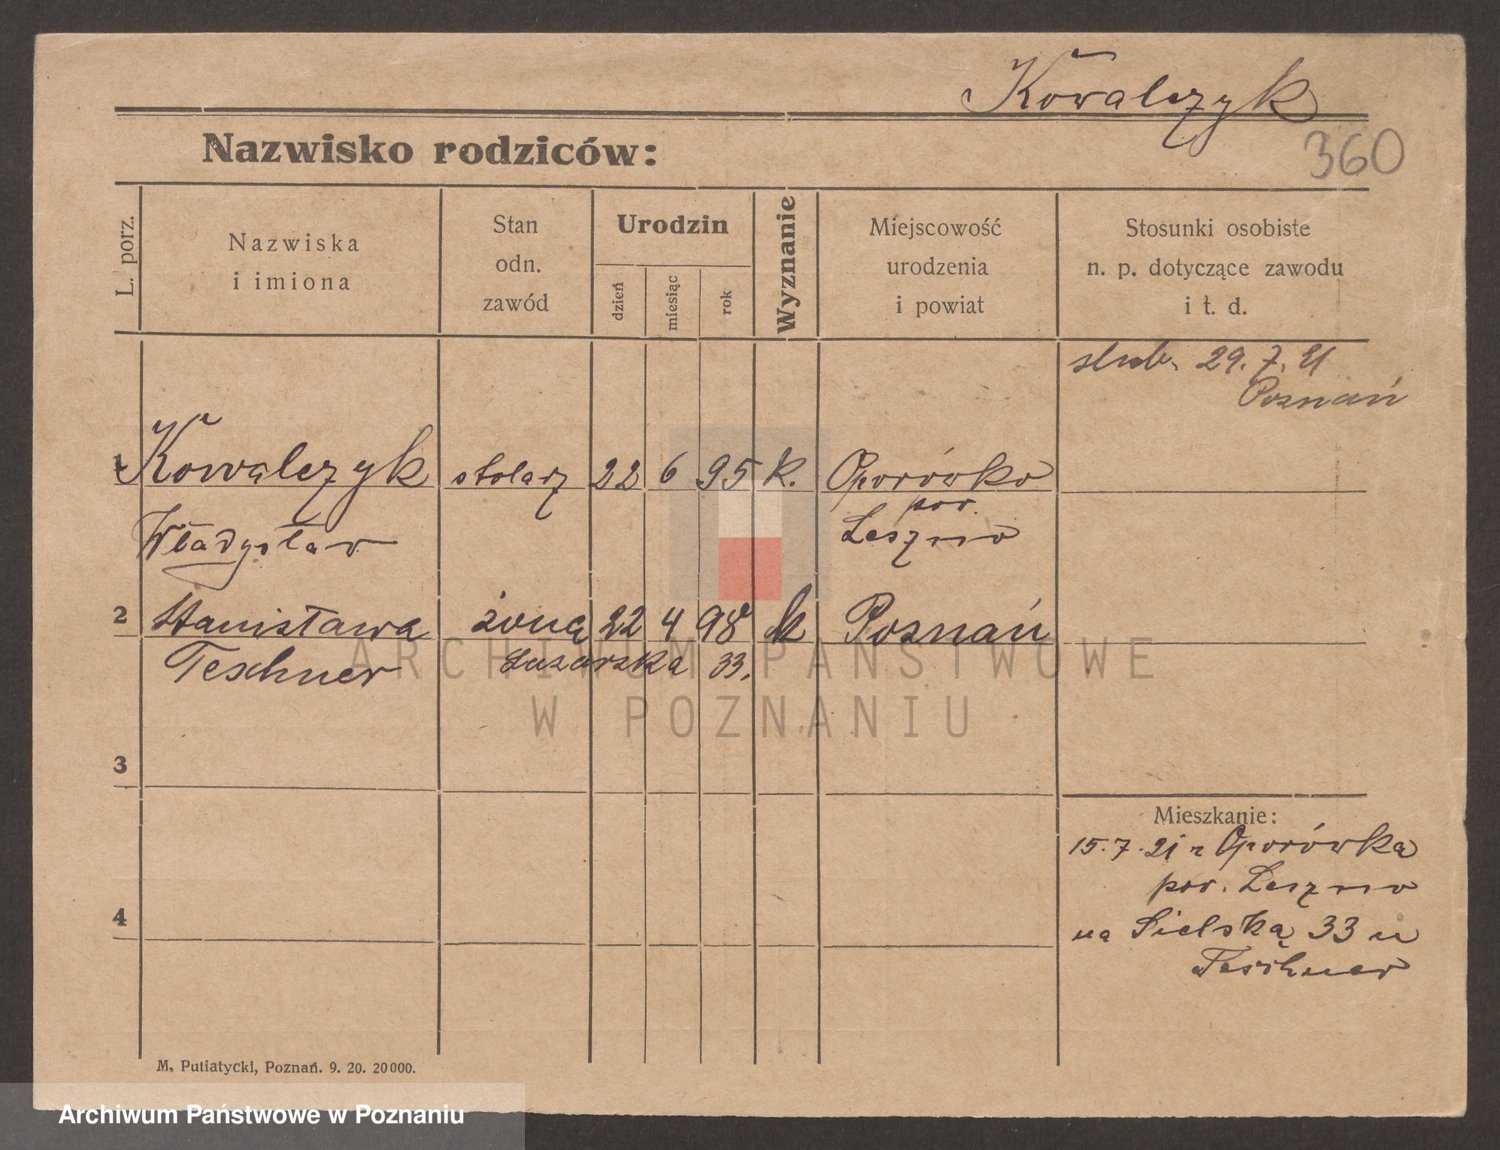 Kowalczyk
360
Nazwisko rodziców:
L. porz.
Nazwiska
i imiona
Stan
odn.
zawód
Urodzin
dzień
miesiąc
rok
Wyznanie
Miejscowość
urodzenia
i powiat
Stosunki osobiste
n. p. dotyczące zawodu
i t. d.
ślub. 29. 7. 21
Poznań
1 Kowalczyk stolarz 22 6 95 k. Oporówko
pow.
Władysław Leszno
2 Stanisława żona 22 4 98 k Poznań
Teschner 33.
ARCHIWUM PAŃSTWOWE
W POZNANIU
3
Mieszkanie:
15. 7. 21 z Oporówka
pow. Leszno
4
na Sielską 33 u
Teschner
M. Putiatycki, Poznań. 9. 20. 20000.
Archiwum Państwowe w Poznaniu